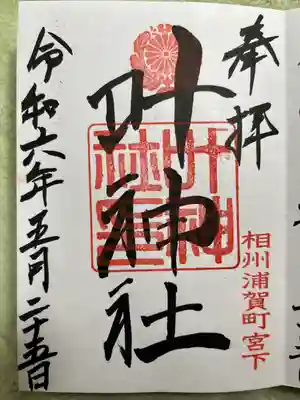 奉拝
相州浦賀町宮下
叶神社
叶神社璽
令和六年五月二十五日